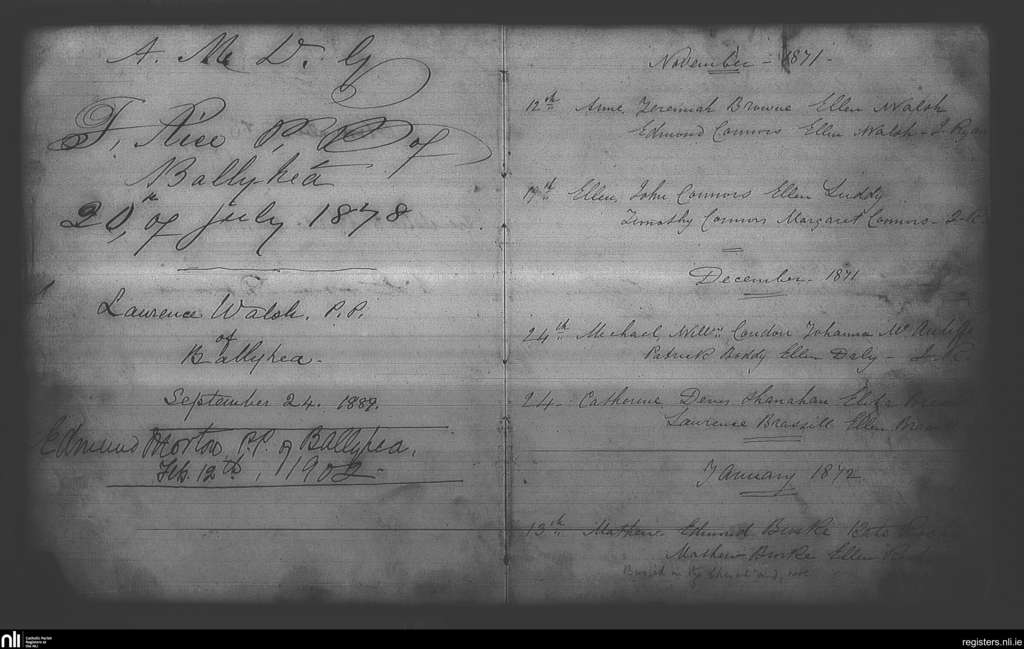 A. M. D. G
T. Rice P. P. of
Ballyhea
20th of July 1878
Lawrence Walsh. P.P.
of
Ballyhea.
September 24. 1889.
Edmund Morton, P.P. of Ballyhea,
Feb. 12th, 1902
November - 1871 -
12th Anne, Jeremiah Browne Ellen Walsh
Edmond Connors Ellen Walsh - J. Ryan
19th Ellen, John Connors Ellen Luddy
Timothy Connors Margaret Connors -
December - 1871
24th Michael, Willm Condon Johanna McAuliffe
Patrick Boddy Ellen Daly -
24 - Catherine Denis Shanahan Eliza
Laurence Brassill Ellen
January 1872
13th Mathew Edmund Burke
Mathew Burke Ellen
nli
Catholic Parish
Registers at
the NLI
registers.nli.ie